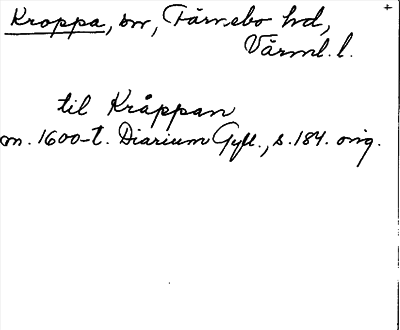 Kroppa, sn, Färnebo hd,
Värml. l.
til Kråppan
m. 1600-t. Diarium Gyll., s. 184. orig.